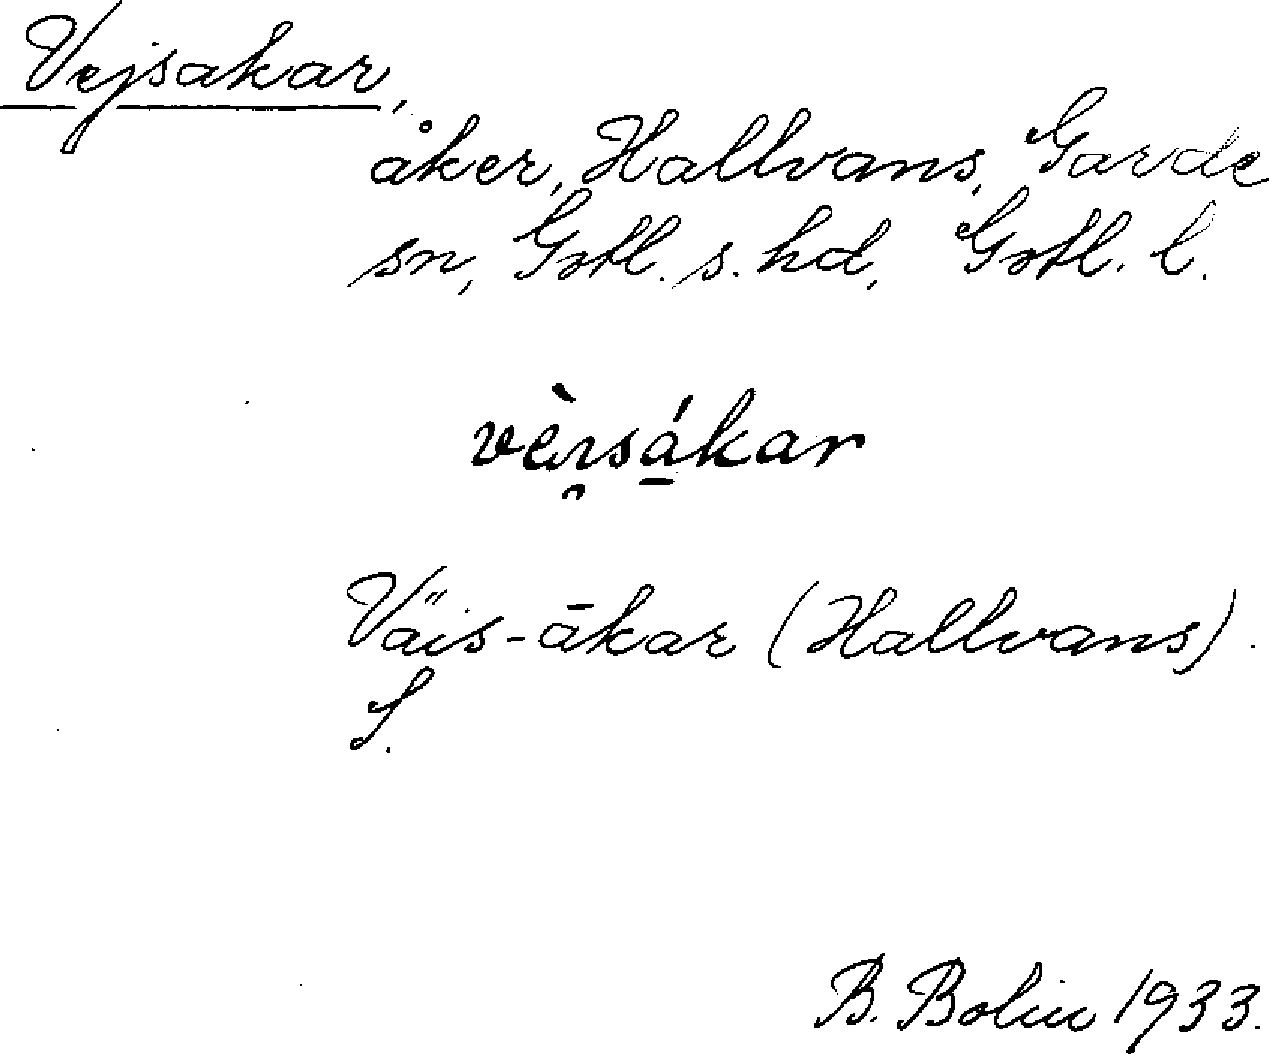 Vejsakar,
åker, Hallvans, Garde
sn, Gotl. s. hd, Gotl. l.
vèi̯sá̱kar
Väis-ākar (Hallvans).
S.
B. Bolin 1933.